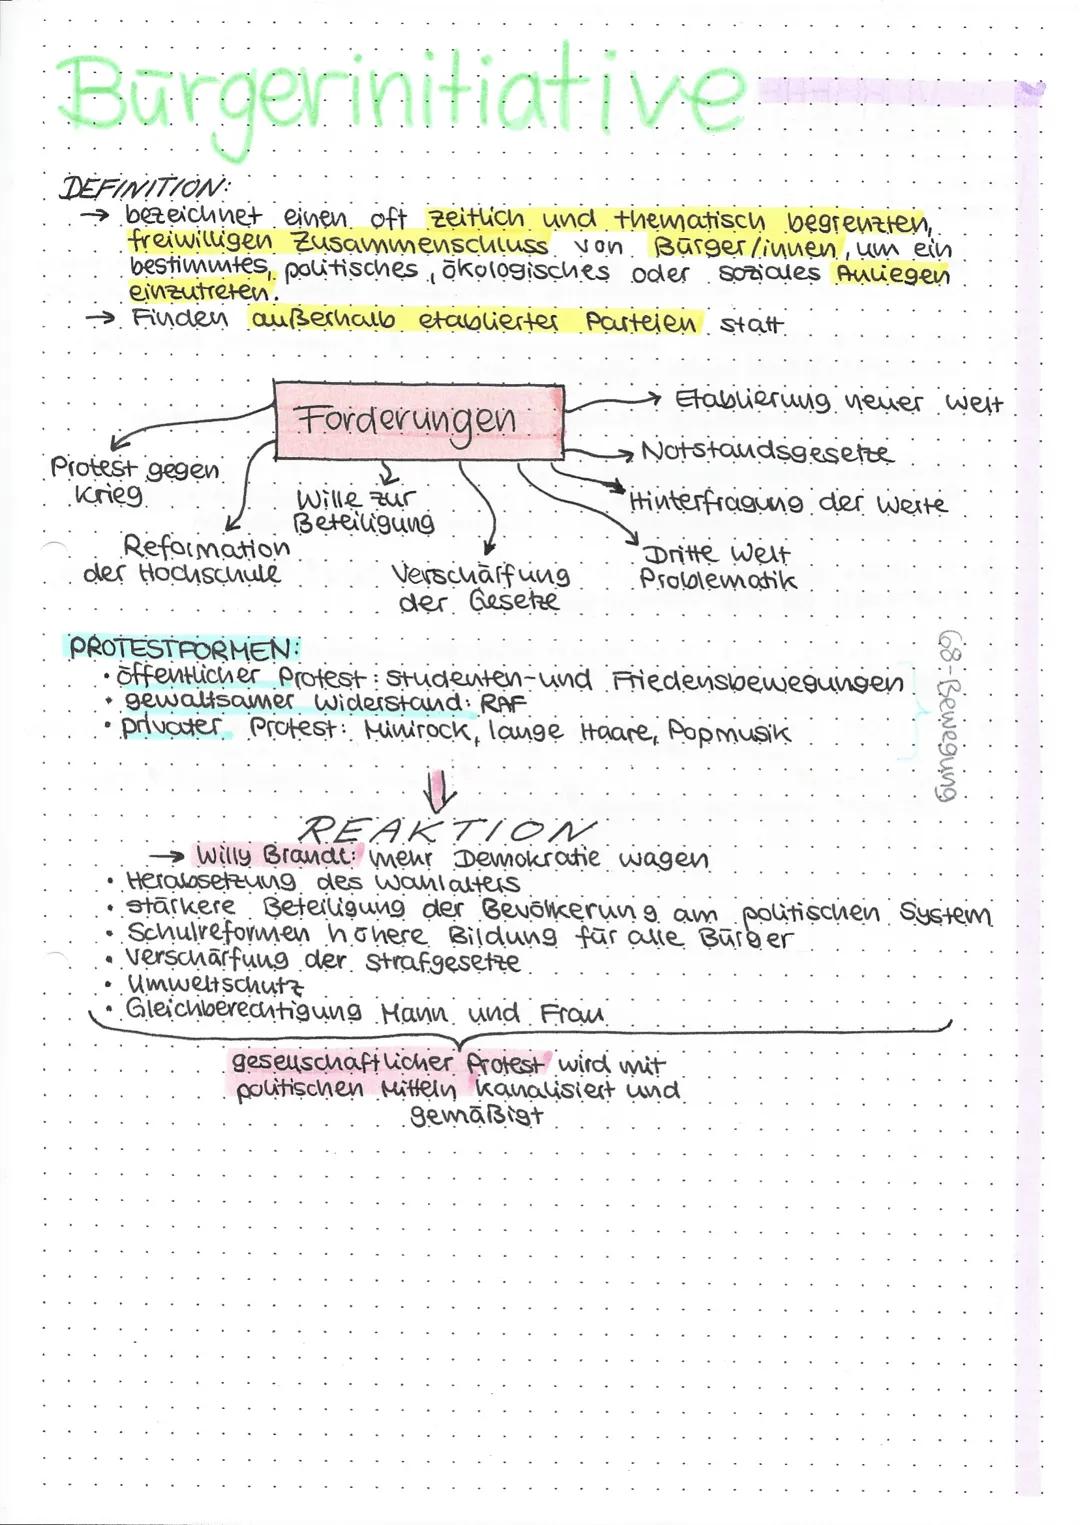 Bürgerinitiative
DEFINITION:
→ bezeichnet einen oft zeitlich und thematisch begrenzten,
freiwilligen Zusammenschluss von Bürger/innen, um ein
bestimmtes, politisches, ökologisches oder soziales Anliegen
einzutreten.
→ Finden außerhalb etablierter Parteien statt
Forderungen
→ Etablierung neuer Welt
→ Notstandsgesetze
Protest gegen
Krieg
Wille zur
Beteiligung
Hinterfragung der Werte
Reformation
der Hochschule
Verschärfung
der Gesetze
Dritte Welt
Problematik
PROTESTFORMEN:
• öffentlicher Protest: Studenten- und Friedensbewegungen
• gewaltsamer Widerstand: RAF
• privater Protest: Minirock, lange Haare, Popmusik
68-Bewegung
REAKTION
→ Willy Brandt: mehr Demokratie wagen
• Herabsetzung des Wahlalters
• stärkere Beteiligung der Bevölkerung am politischen System
• Schulreformen höhere Bildung für alle Bürger
• Verschärfung der Strafgesetze
• Umweltschutz
• Gleichberechtigung Mann und Frau
gesellschaftlicher Protest wird mit
politischen Mitteln kanalisiert und
gemäßigt